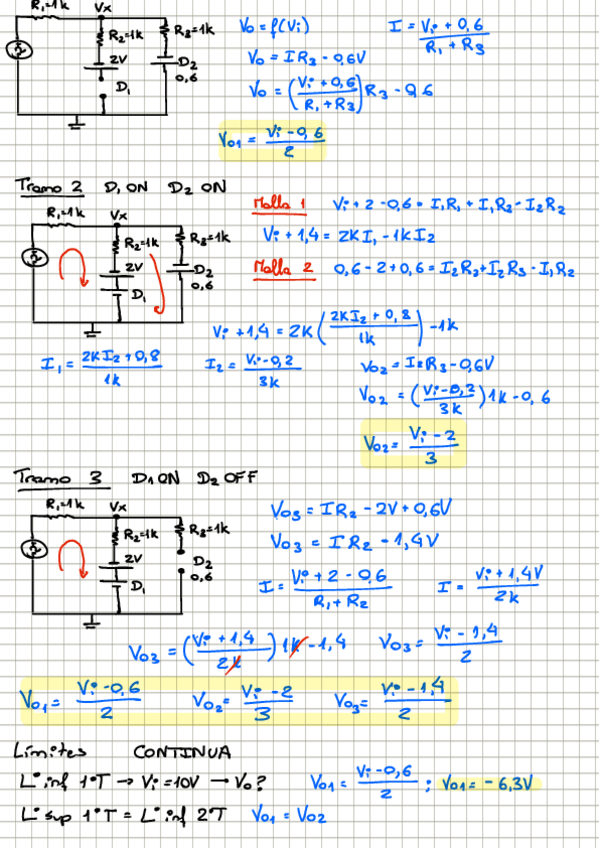 R₁=1k Vx
R₂=1k
R₃=1k
2V
D₁
D₂
0,6
Vo = f(Vi) I = (Vi + 0,6)/(R₁ + R₃)
Vo = IR₃ - 0,6V
Vo = ((Vi + 0,6)/(R₁ + R₃)) R₃ - 0,6
Vo1 = (Vi - 0,6)/2
Tramo 2 D₁ ON D₂ ON
R₁=1k Vx
R₂=1k
R₃=1k
2V
D₁
D₂
0,6
Malla 1 Vi + 2 - 0,6 = I₁R₁ + I₁R₂ - I₂R₂
Vi + 1,4 = 2KI₁ - 1KI₂
Malla 2 0,6 - 2 + 0,6 = I₂R₂ + I₂R₃ - I₁R₂
Vi + 1,4 = 2K ((2KI₂ + 0,8)/1k) - 1k
I₁ = (2KI₂ + 0,8)/1k I₂ = (Vi - 0,2)/3k Vo2 = I₂R₃ - 0,6V
Vo2 = ((Vi - 0,2)/3k) 1k - 0,6
Vo2 = (Vi - 2)/3
Tramo 3 D₁ ON D₂ OFF
R₁=1k Vx
R₂=1k
R₃=1k
2V
D₁
D₂
0,6
Vo3 = IR₂ - 2V + 0,6V
Vo3 = IR₂ - 1,4V
I = (Vi + 2 - 0,6)/(R₁ + R₂) I = (Vi + 1,4V)/2k
Vo3 = ((Vi + 1,4)/2k) 1k - 1,4 Vo3 = (Vi - 1,4)/2
Vo1 = (Vi - 0,6)/2 Vo2 = (Vi - 2)/3 Vo3 = (Vi - 1,4)/2
Límites CONTINUA
L° inf 1°T → Vi = 10V → Vo? Vo1 = (Vi - 0,6)/2 ; Vo1 = - 6,3V
L° sup 1°T = L° inf 2T Vo1 = Vo2